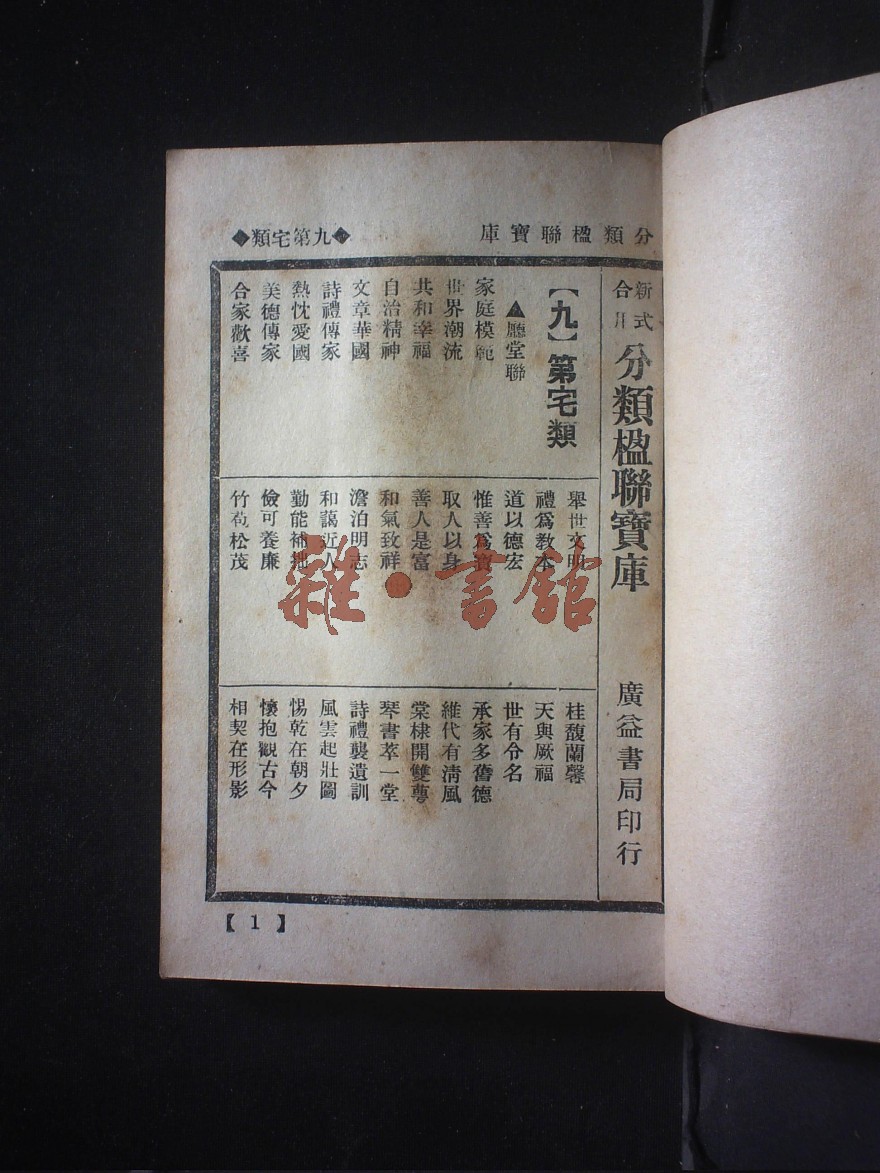 分類楹聯寶庫
◆九第宅類◆
新式
合用
分類楹聯寶庫
廣益書局印行
【九】第宅類
▲廳堂聯
家庭模範
世界潮流
共和幸福
自治精神
文章華國
詩禮傳家
熱忱愛國
美德傳家
合家歡喜
舉世文明
禮爲教本
道以德宏
惟善爲寶
取人以身
善人是富
和氣致祥
澹泊明志
和藹近人
勤能補拙
儉可養廉
竹苞松茂
桂馥蘭馨
天與厥福
世有令名
承家多舊德
維代有清風
棠棣開雙萼
琴書萃一堂
詩禮襲遺訓
風雲起壯圖
惕乾在朝夕
懷抱觀古今
相契在形影
【1】
雜·書館